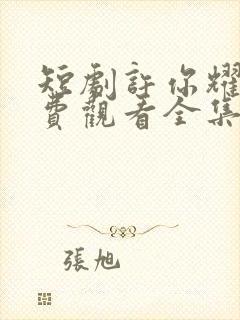 短劇許你耀
費觀看全集
張旭